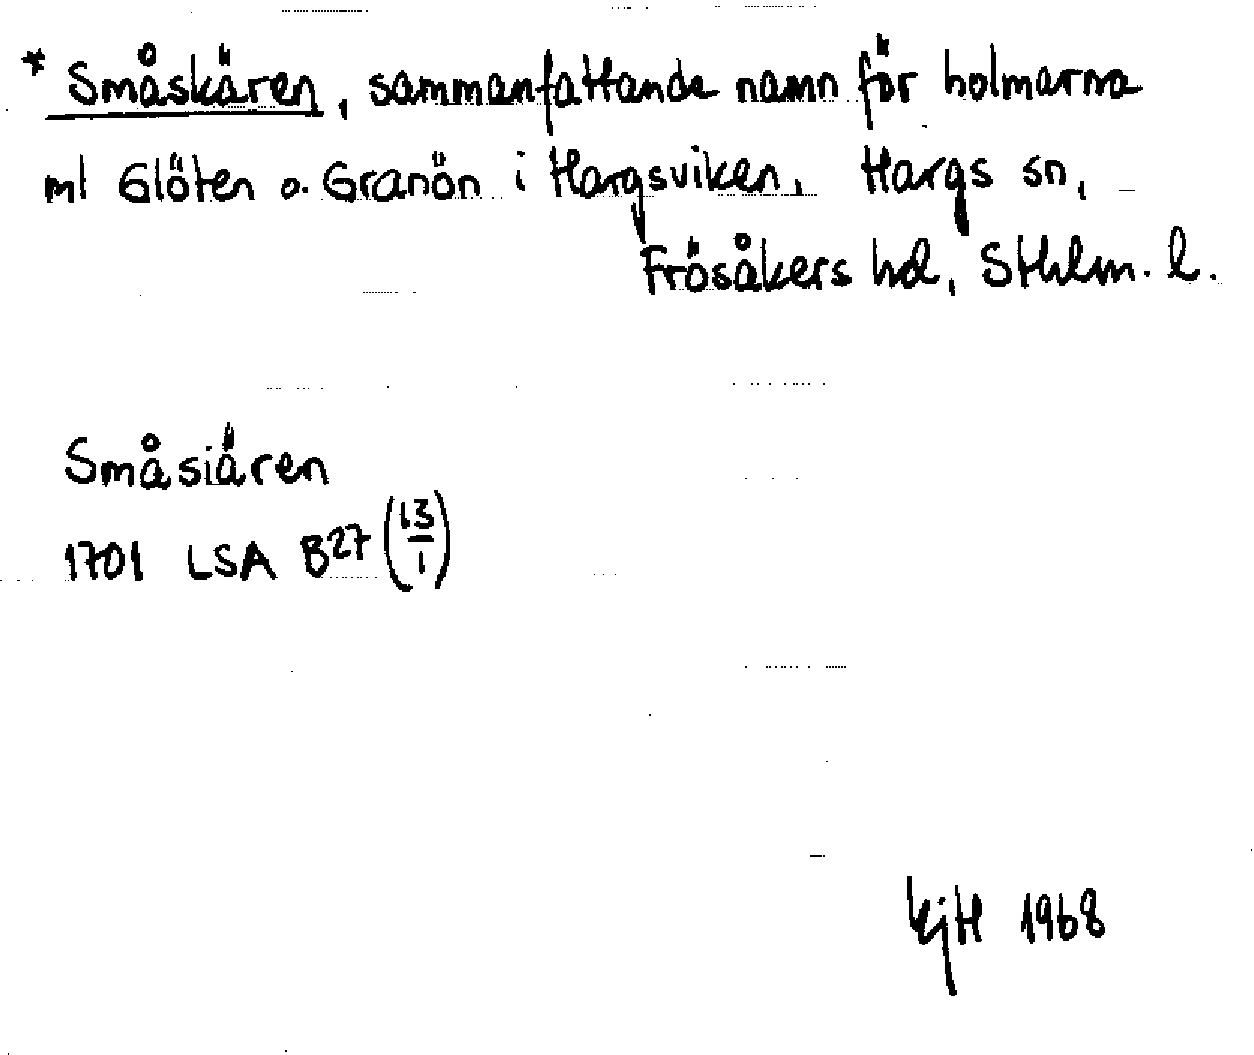 * Småskären, sammanfattande namn för holmarna
ml Glöten o. Granön i Hargsviken, Hargs sn,
Frösåkers hd, Sthlm. l.
Småsiären
1701 LSA B27 (13/1)
KjH 1968